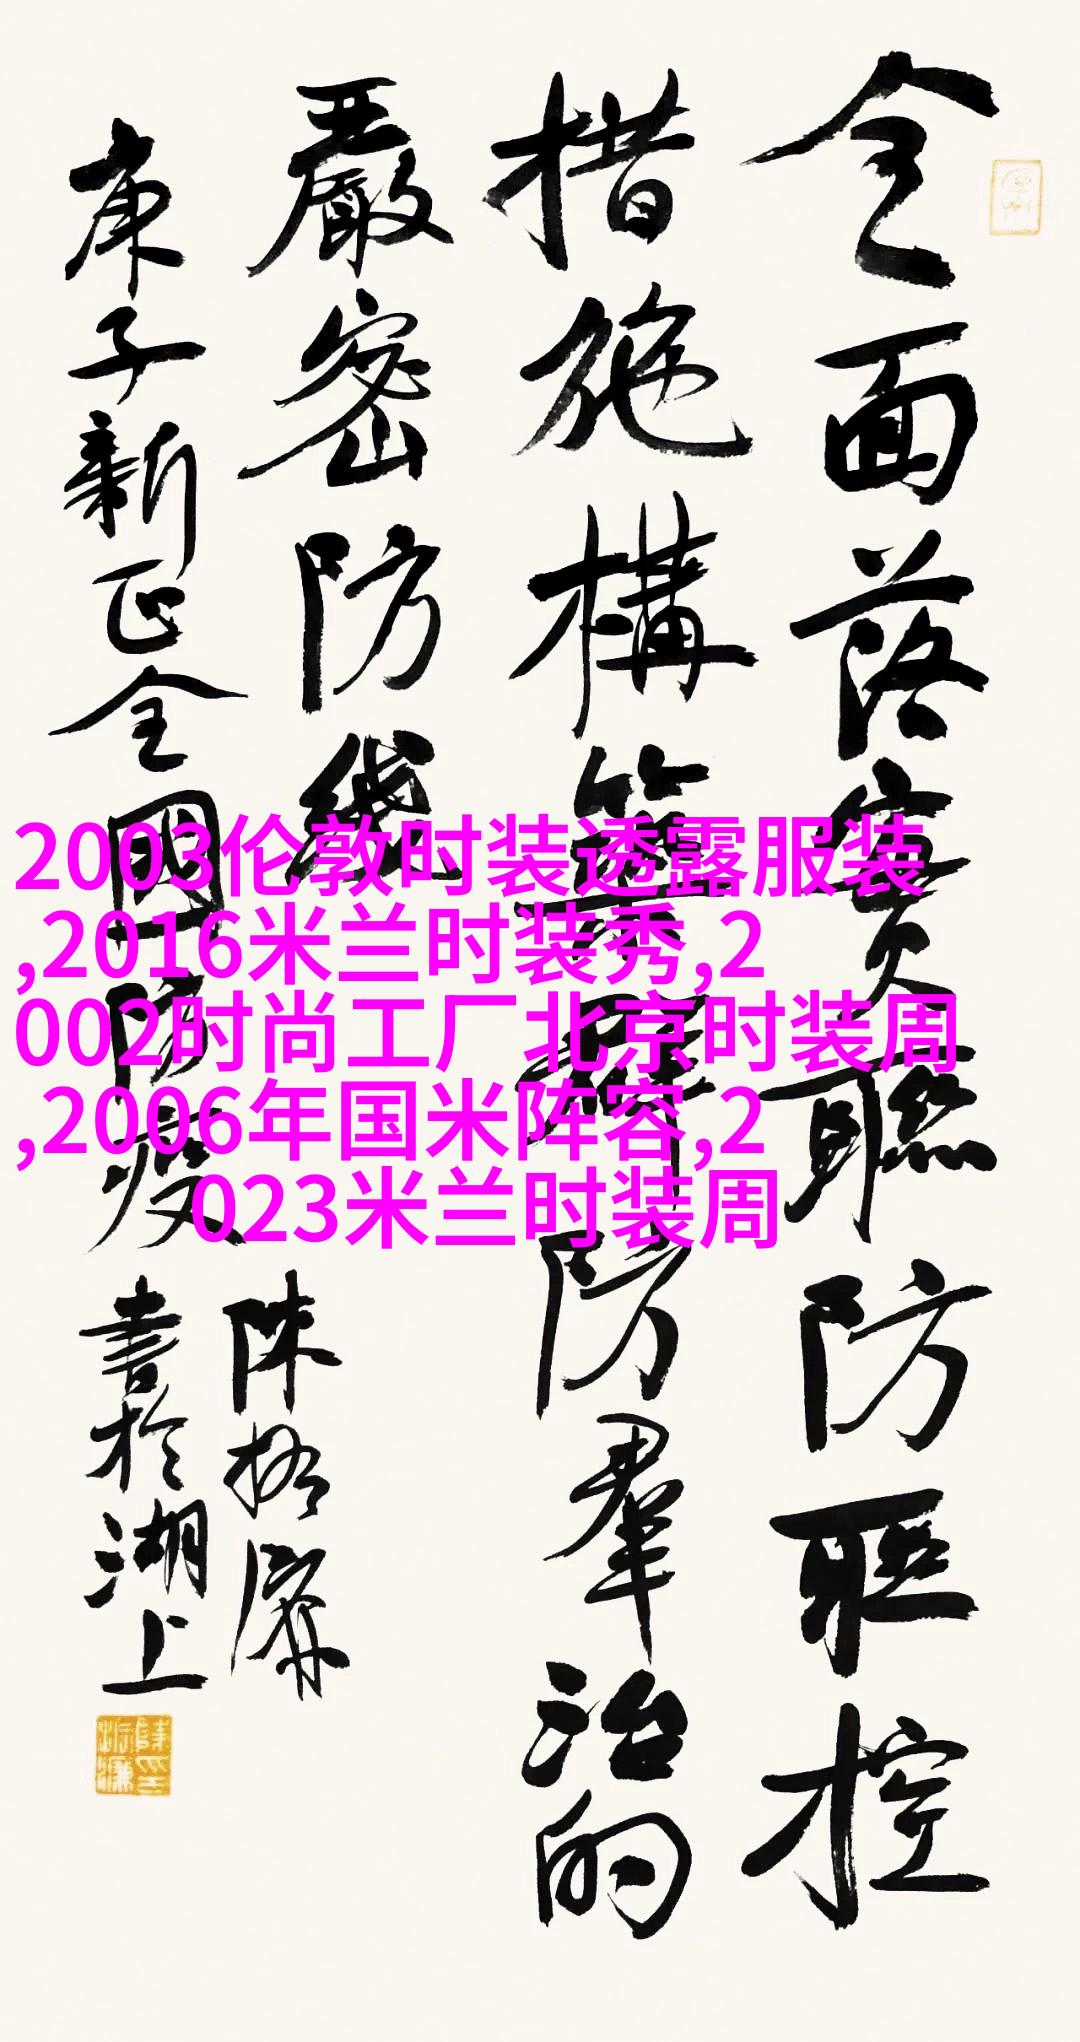 全面落實联防联控
措施構築群防羣治的
嚴密防线
庚子新正全國防疫
陳振濂
書於湖上
2003伦敦时装透露服装
,2016米兰时装秀,2
002时尚工厂北京时装周
,2006年国米阵容,2
023米兰时装周